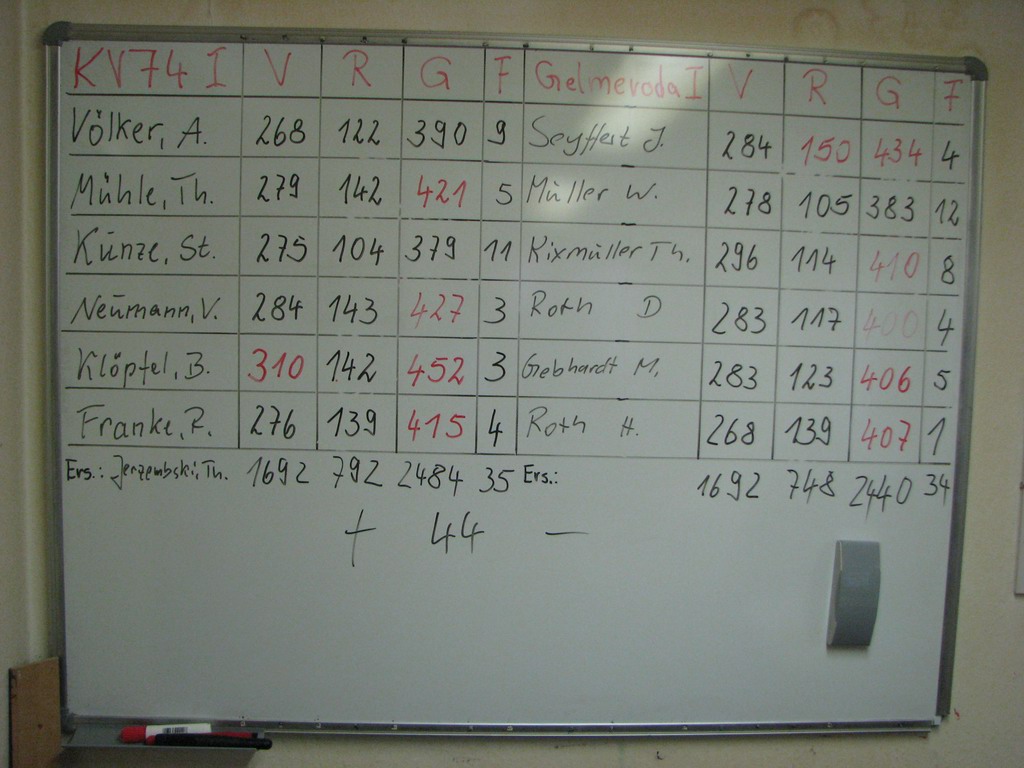 KV74 I V R G F Gelmeroda I V R G F
Völker, A. 268 122 390 9 Seyffert J. 284 150 434 4
Mühle, Th. 279 142 421 5 Müller W. 278 105 383 12
Kunze, St. 275 104 379 11 Kixmüller Th. 296 114 410 8
Neumann, V. 284 143 427 3 Roth D 283 117 400 4
Klöpfel, B. 310 142 452 3 Gebhardt M. 283 123 406 5
Franke, R. 276 139 415 4 Roth H. 268 139 407 1
Ers.: Jerzembski, Th. 1692 792 2484 35 Ers.: 1692 748 2440 34
+ 44 —